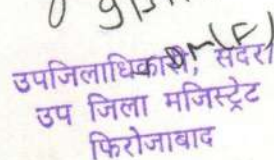 उपजिलाधिकारी, सदर।
उप जिला मजिस्ट्रेट
फिरोजाबाद